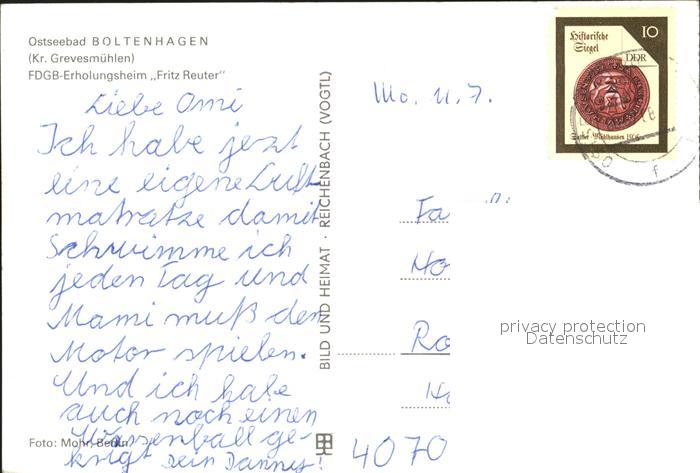 Ostseebad BOLTENHAGEN
(Kr. Grevesmühlen)
FDGB-Erholungsheim „Fritz Reuter"
Liebe Omi
Ich habe jezt
eine eigene Luft
matratze damit
Schwimme ich
jeden Tag und
Mami muß den
Motor spielen.
Und ich habe
auch noch einen
Wassenball ge-
krigt Dein Danny!
Foto: Mohr, Berlin
BILD UND HEIMAT · REICHENBACH (VOGTL)
Historische
Siegel
10
DDR
Mo. 11.7.
Fa
Ho
Ro
4070
privacy protection
Datenschutz